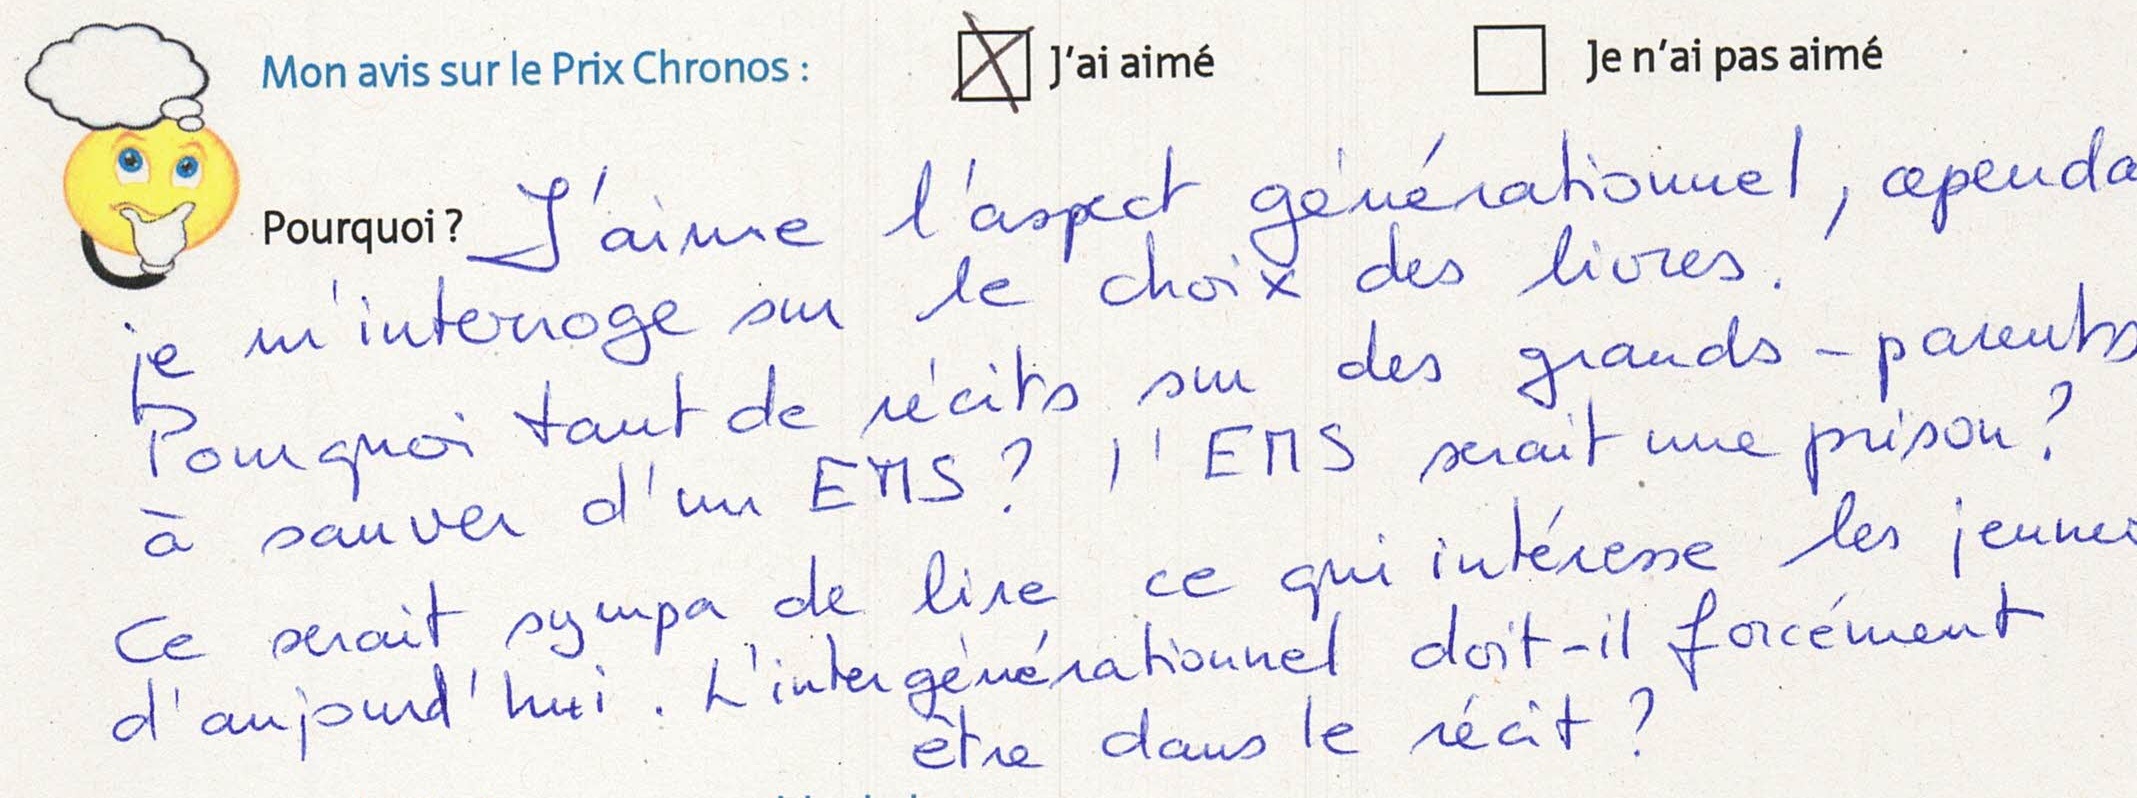 Mon avis sur le Prix Chronos : J'ai aimé Je n'ai pas aimé
Pourquoi ? J'aime l'aspect générationnel, cependa
je m'interroge sur le choix des livres.
Pourquoi tant de récits sur des grands-parents
à sauver d'un EMS ? l'EMS serait une prison ?
Ce serait sympa de lire ce qui intéresse les jeunes
d'aujourd'hui. L'intergénérationnel doit-il forcément
être dans le récit ?